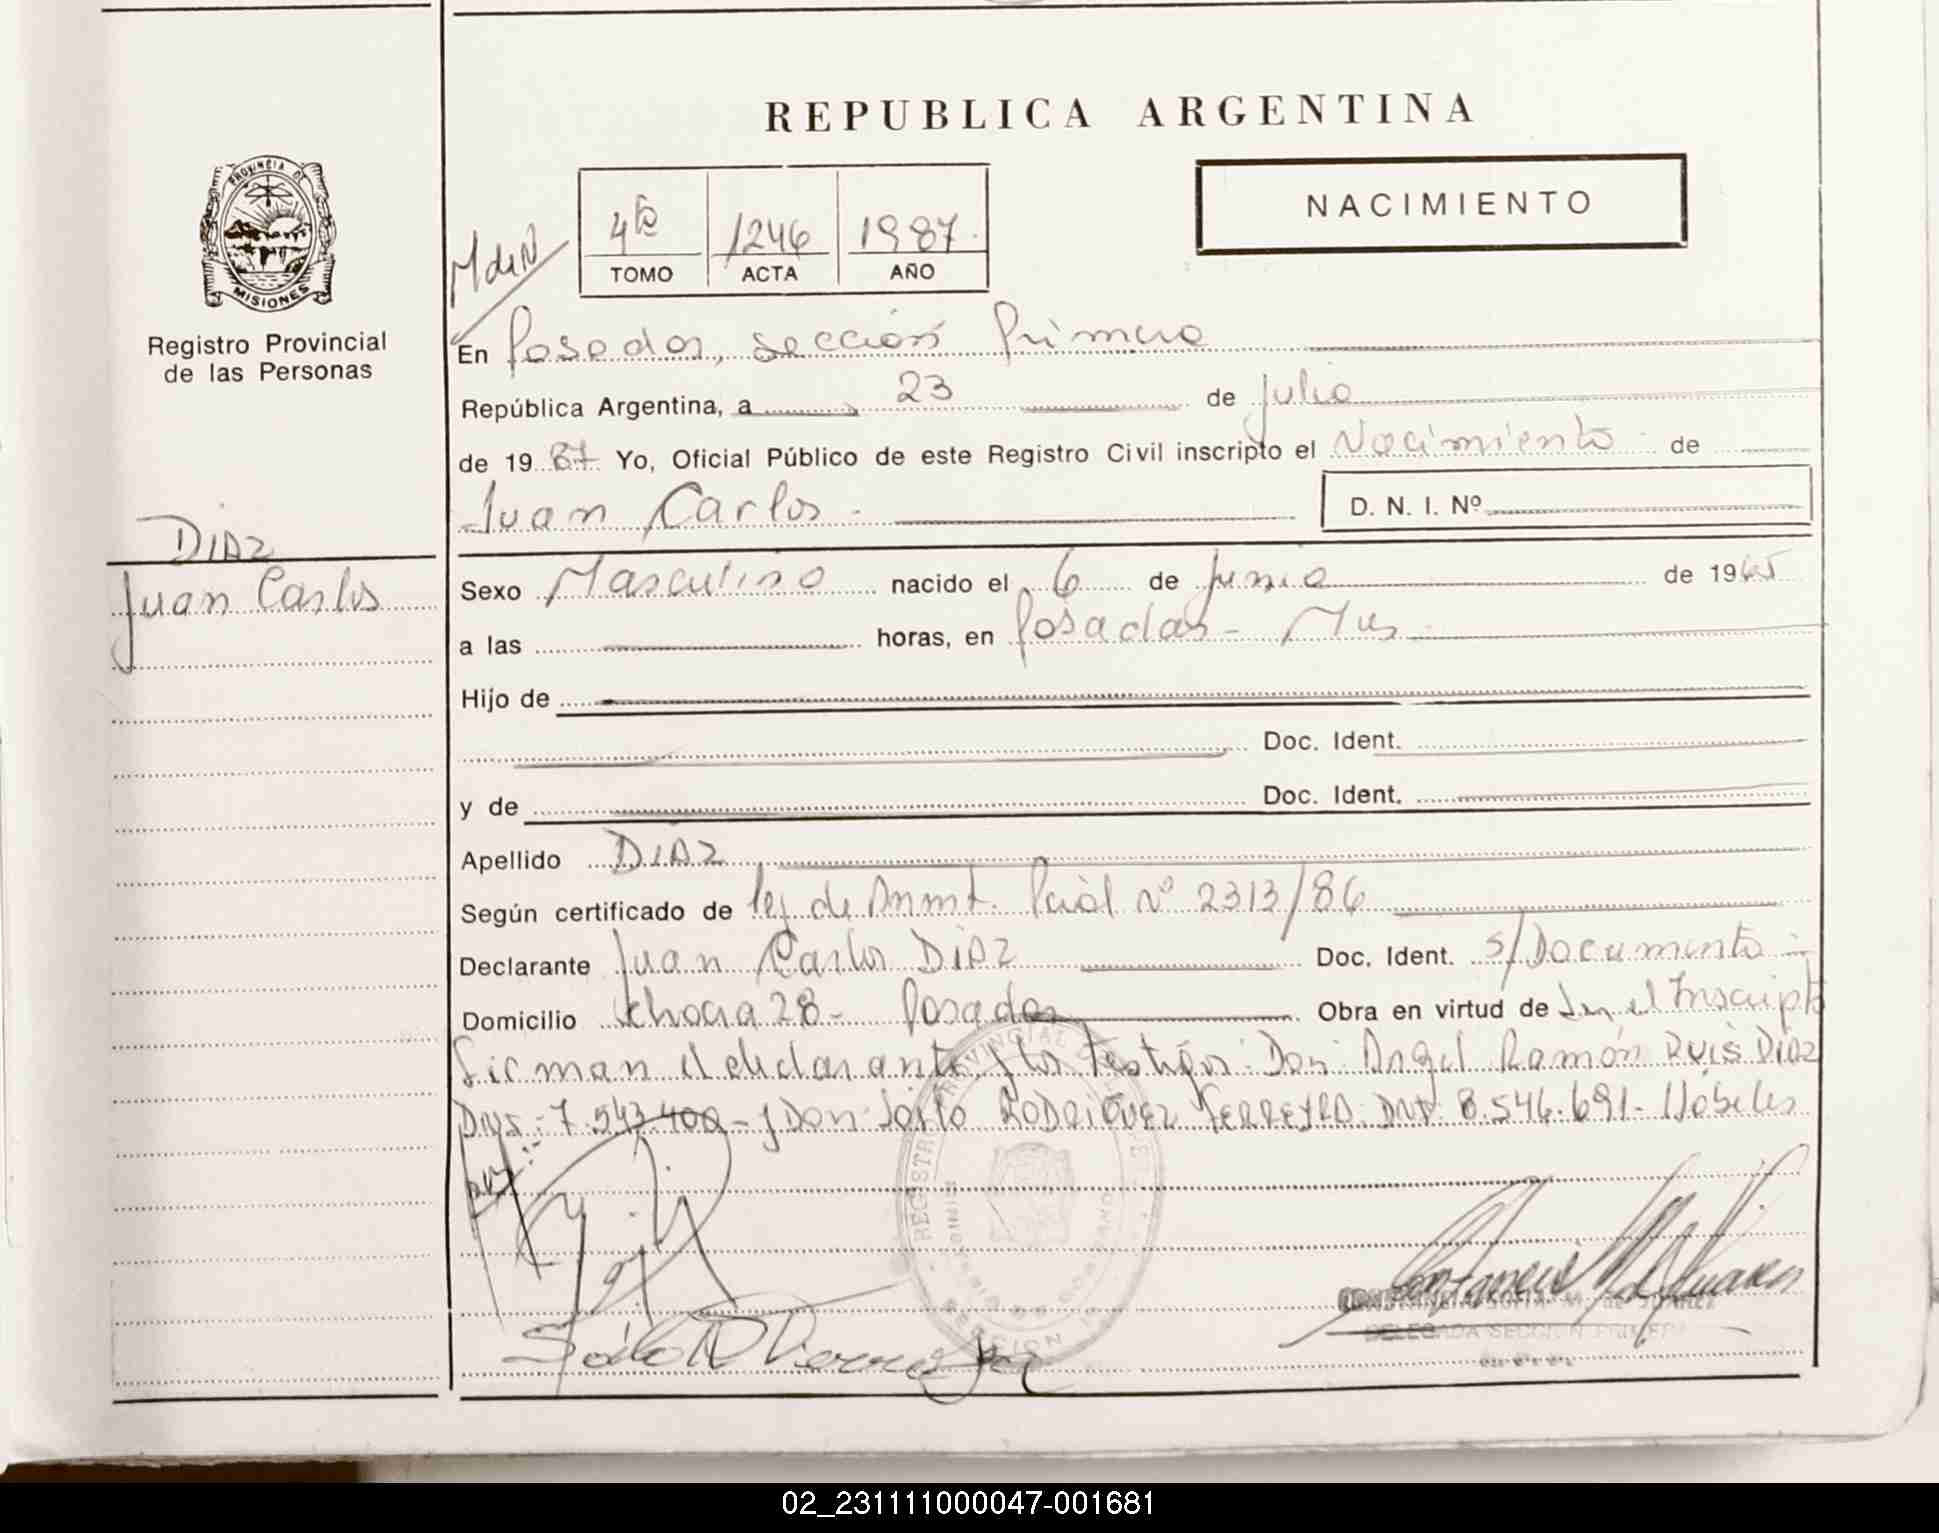 REPUBLICA ARGENTINA
PROVINCIA DE
MISIONES
Registro Provincial
de las Personas
NACIMIENTO
4to 1246 1987
TOMO ACTA AÑO
MdeN
En Posadas, sección Primera
República Argentina, a 23 de Julio
de 1987 Yo, Oficial Público de este Registro Civil inscripto el Nacimiento de
Juan Carlos
D. N. I. Nº
DIAZ
Juan Carlos
Sexo Masculino nacido el 6 de Junio de 1965
a las horas, en Posadas - Mnes
Hijo de
Doc. Ident.
y de Doc. Ident.
Apellido DIAZ
Según certificado de Ley de Amnt. Pcial Nº 2313/86
Declarante Juan Carlos DIAZ Doc. Ident. s/Documento
Domicilio chacra 28 - Posadas Obra en virtud de Ser el Inscripto
firman el declarante y los Testigos: Don Angel Ramón RUIS DIAZ
7.543.400 - y Don RODRIGUEZ FERREYRA DNI 8.546.691 - Hábiles
REGISTRO PROVINCIAL DE LAS PERSONAS
MINISTERIO DE GOBIERNO
SECCION 1ª
CONSTANCIA SOFIA M. de JUAREZ
DELEGADA SECCION PRIMERA
02_231111000047-001681